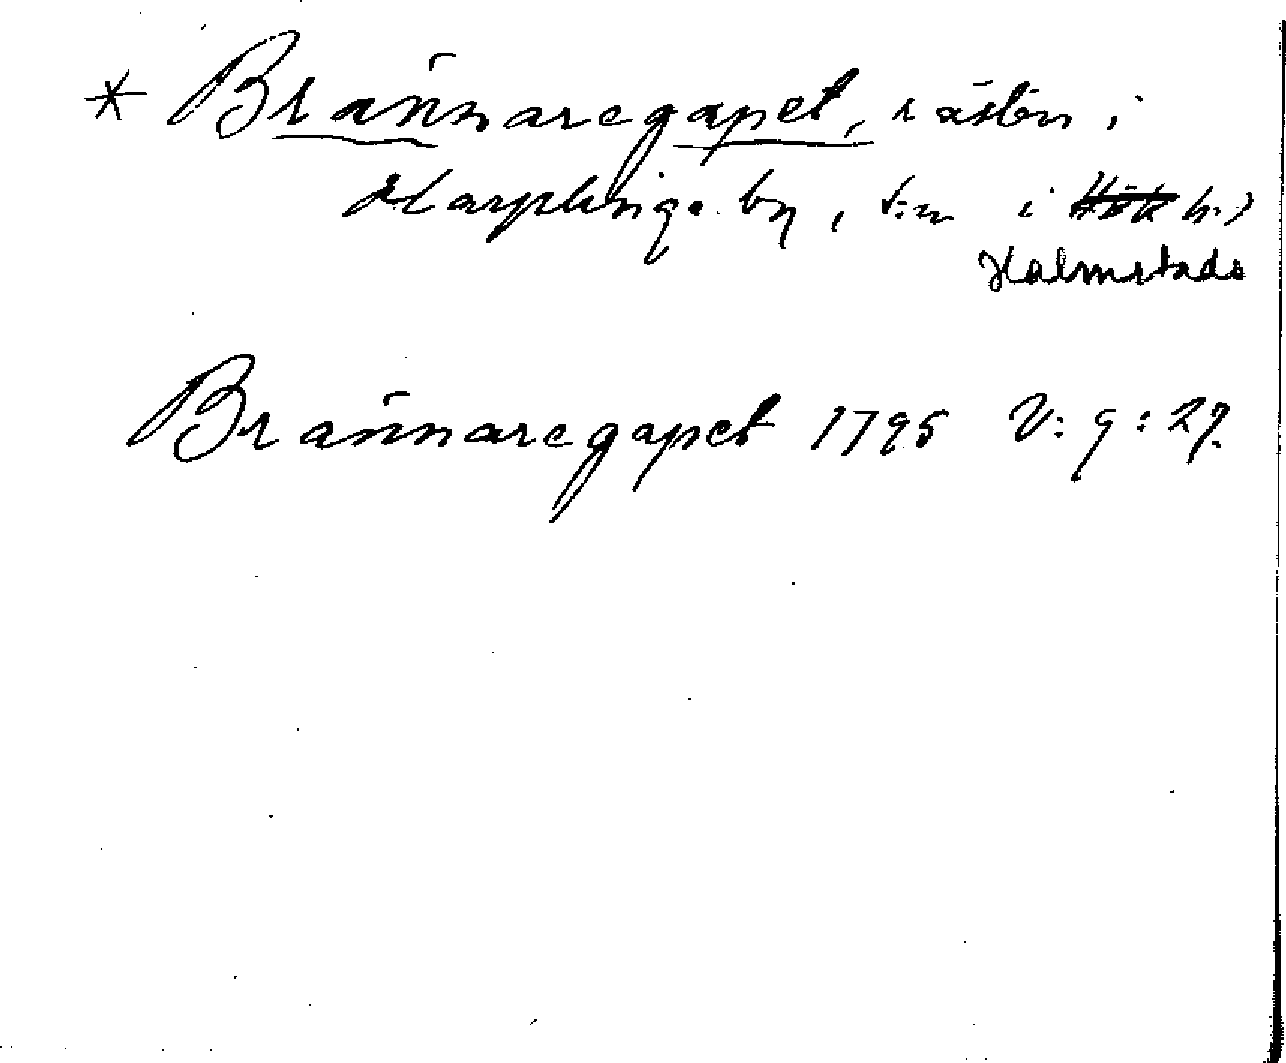 * Brännaregapet, råsten i
Harplinge by, s:n i Hök h.,
Halmstads
Brännaregapet 1795 V: 9: 27.